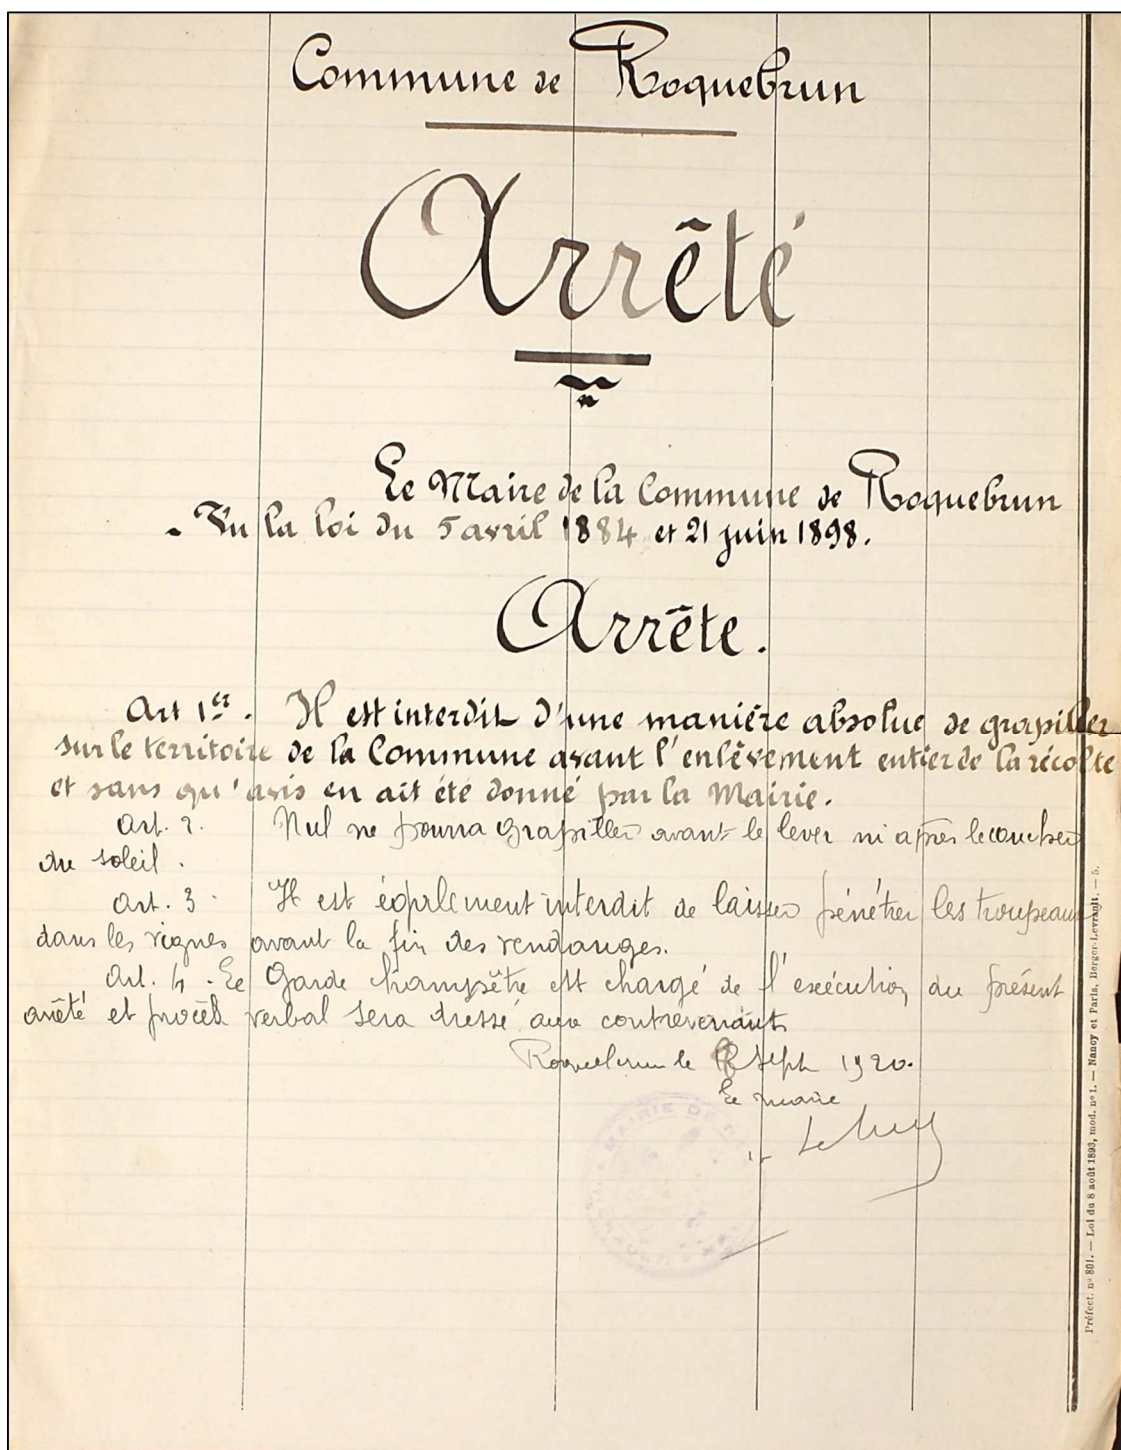 Commune de Roquebrun
Arrêté
Le Maire de la Commune de Roquebrun
- Vu la loi du 5 avril 1884 et 21 juin 1898.
Arrête.
Art 1er. Il est interdit d'une manière absolue de grapiller
sur le territoire de la Commune avant l'enlèvement entier de la récolte
et sans qu'avis en ait été donné par la Mairie.
Art. 2. Nul ne pourra grapiller avant le lever ni après le coucher
du soleil.
Art. 3. Il est également interdit de laisser pénétrer les troupeaux
dans les vignes avant la fin des vendanges.
Art. 4. Le Garde Champêtre est chargé de l'exécution du présent
arrêté et procès verbal sera dressé aux contrevenants
Roquebrun le Sept 1920.
Le maire
MAIRIE DE
Préfect. nº 801. — Loi du 8 août 1893, mod. nº 1. — Nancy et Paris, Berger-Levrault. — 5.